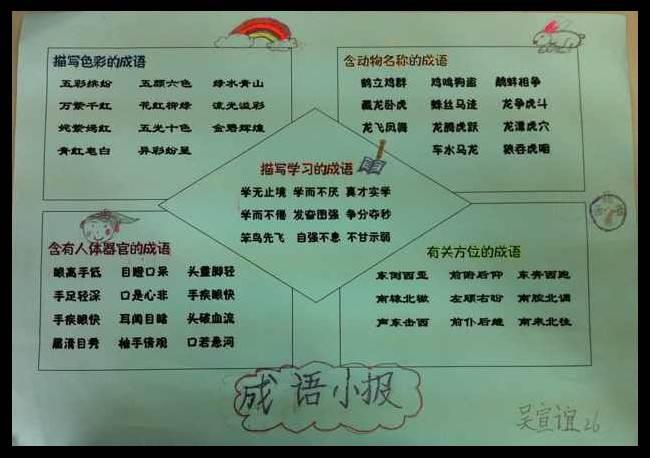 描写色彩的成语
五彩缤纷 五颜六色 绿水青山
万紫千红 花红柳绿 流光溢彩
姹紫嫣红 五光十色 金碧辉煌
青红皂白 异彩纷呈
含动物名称的成语
鹤立鸡群 鸡鸣狗盗 鹬蚌相争
藏龙卧虎 蛛丝马迹 龙争虎斗
龙飞凤舞 龙腾虎跃 龙潭虎穴
车水马龙 狼吞虎咽
描写学习的成语
学无止境 学而不厌 真才实学
学而不倦 发奋图强 争分夺秒
笨鸟先飞 自强不息 不甘示弱
含有人体器官的成语
眼高手低 目瞪口呆 头重脚轻
手足轻深 口是心非 手疾眼快
手疾眼快 耳闻目睹 头破血流
眉清目秀 袖手傍观 口若悬河
有关方位的成语
东倒西歪 前俯后仰 东奔西跑
南辕北辙 左顾右盼 南腔北调
声东击西 前仆后继 南来北往
成语小报
吴宣谊 26